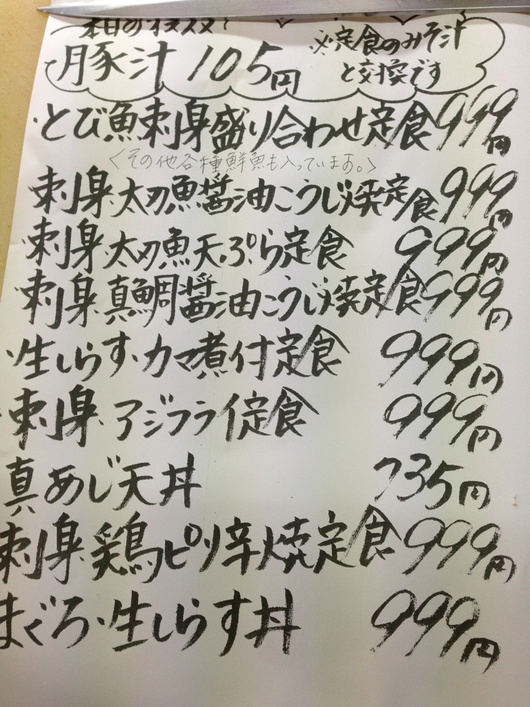 本日のオススメ!
豚汁 105円
※定食のみそ汁
と交換です
・とび魚刺身盛り合わせ定食 999円
<その他各種鮮魚も入っています。>
刺身・太刀魚醤油こうじ焼定食 999円
刺身・太刀魚天ぷら定食 999円
刺身・真鯛醤油こうじ焼定食 999円
・生しらす・カマ煮付定食 999円
・刺身・アジフライ定食 999円
真あじ天丼 735円
刺身・鶏ピリ辛焼定食 999円
まぐろ・生しらす丼 999円